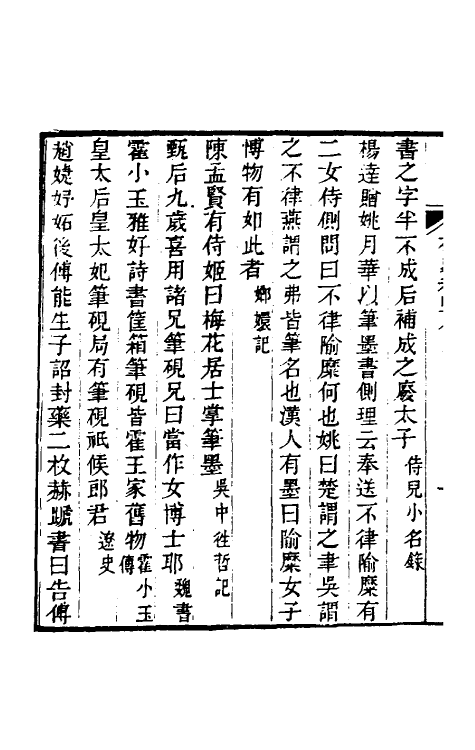 書之字半不成后補成之廢太子 侍兒小名錄
楊達贈姚月華以筆墨書側理云奉送不律隃糜有
二女侍側問曰不律隃糜何也姚曰楚謂之聿吳謂
之不律燕謂之弗皆筆名也漢人有墨曰隃糜女子
博物有如此者 嫏嬛記
陳孟賢有侍姬曰梅花居士掌筆墨 吳中往哲記
甄后九歲喜用諸兄筆硯兄曰當作女博士耶 魏書
霍小玉雅好詩書筐箱筆硯皆霍王家舊物 霍小玉傳
皇太后皇太妃筆硯局有筆硯祗候郎君 遼史
趙婕妤妬後傅能生子詔封藥二枚赫蹏書曰告傅